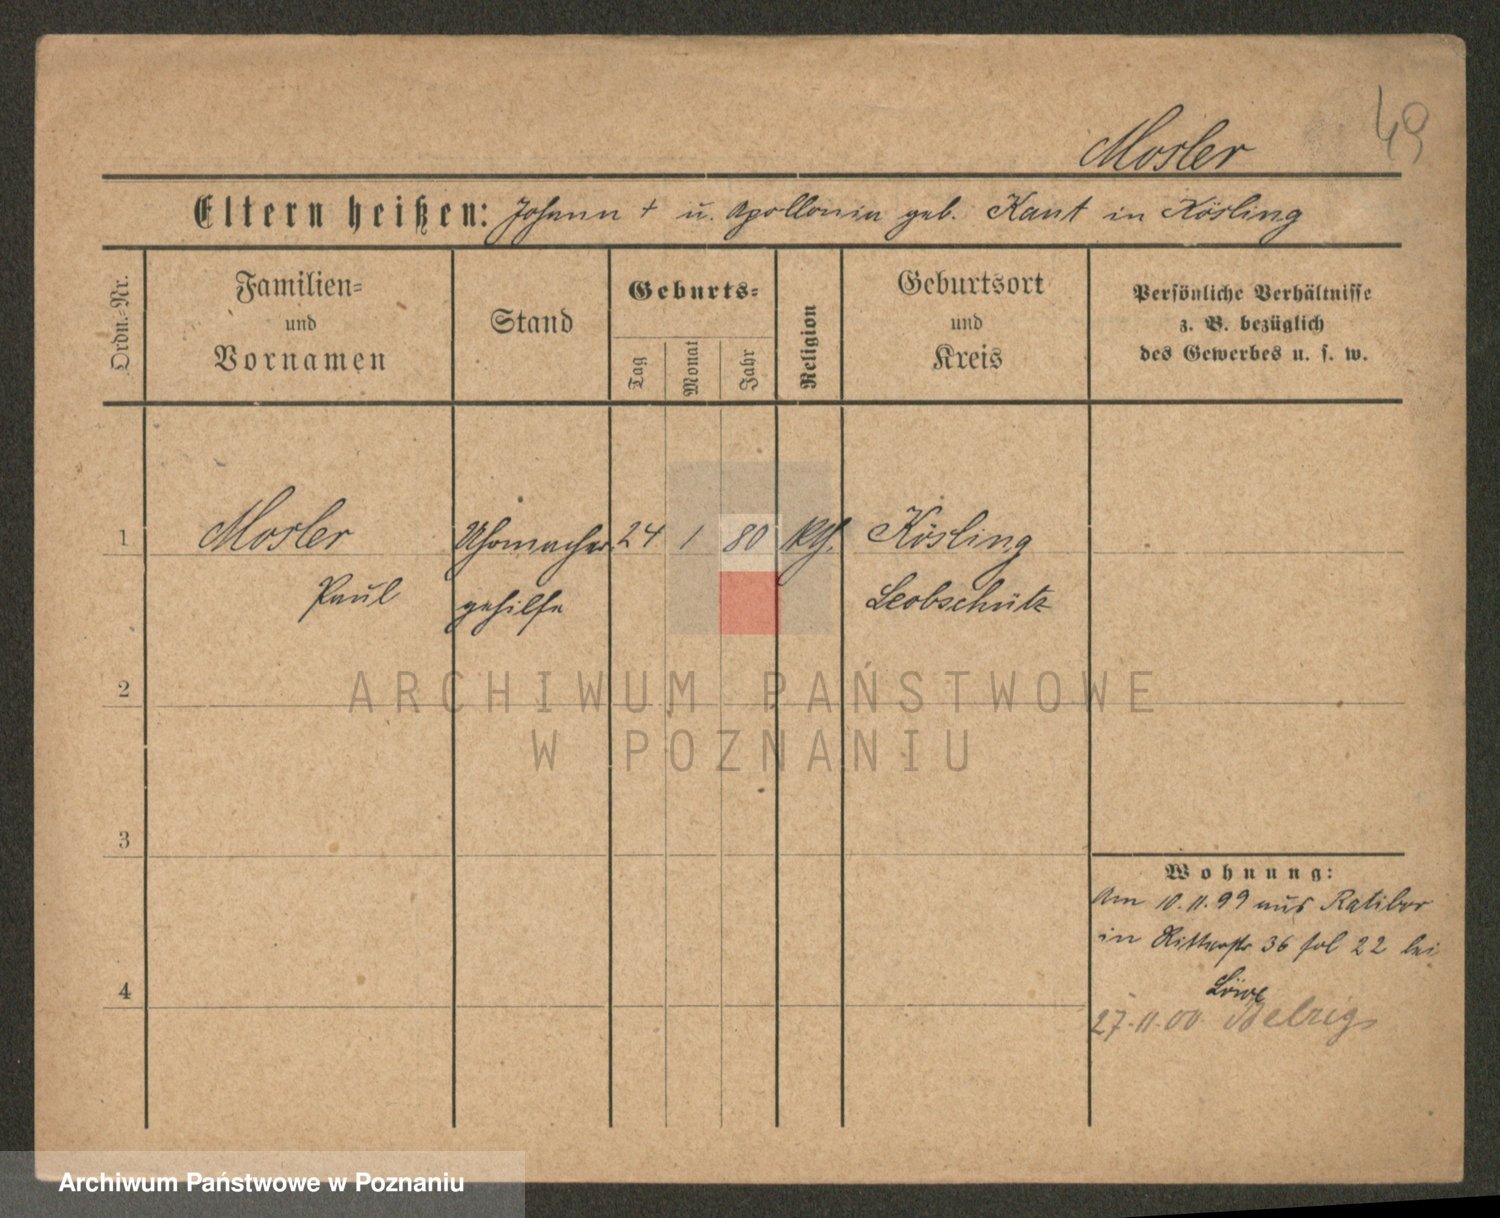 49
Mosler
Eltern heißen: Johann + u. Apollonia geb. Kaut in Kösling
Ordn.-Nr.
Familien-
und
Vornamen
Stand
Geburts-
Tag
Monat
Jahr
Religion
Geburtsort
und
Kreis
Persönliche Verhältnisse
z. B. bezüglich
des Gewerbes u. s. w.
1 Mosler Uhrmacher 24 1 80 kth. Kösling
Paul gehilfe Leobschütz
2
ARCHIWUM PAŃSTWOWE
W POZNANIU
3
Wohnung:
Am 10.11.99 aus Ratibor
in Ritterstr 36 fol 22 bei
4
Löwe
27.11.00 Belzig
Archiwum Państwowe w Poznaniu